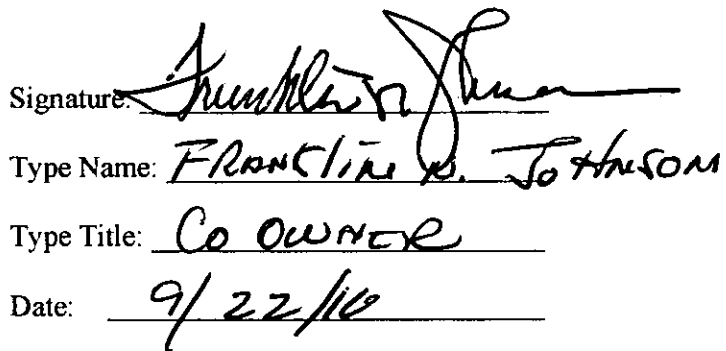 Signature: Franklin n Johnson
Type Name: FRANKlin N. JoHNSON
Type Title: Co OWNER
Date: 9/22/10